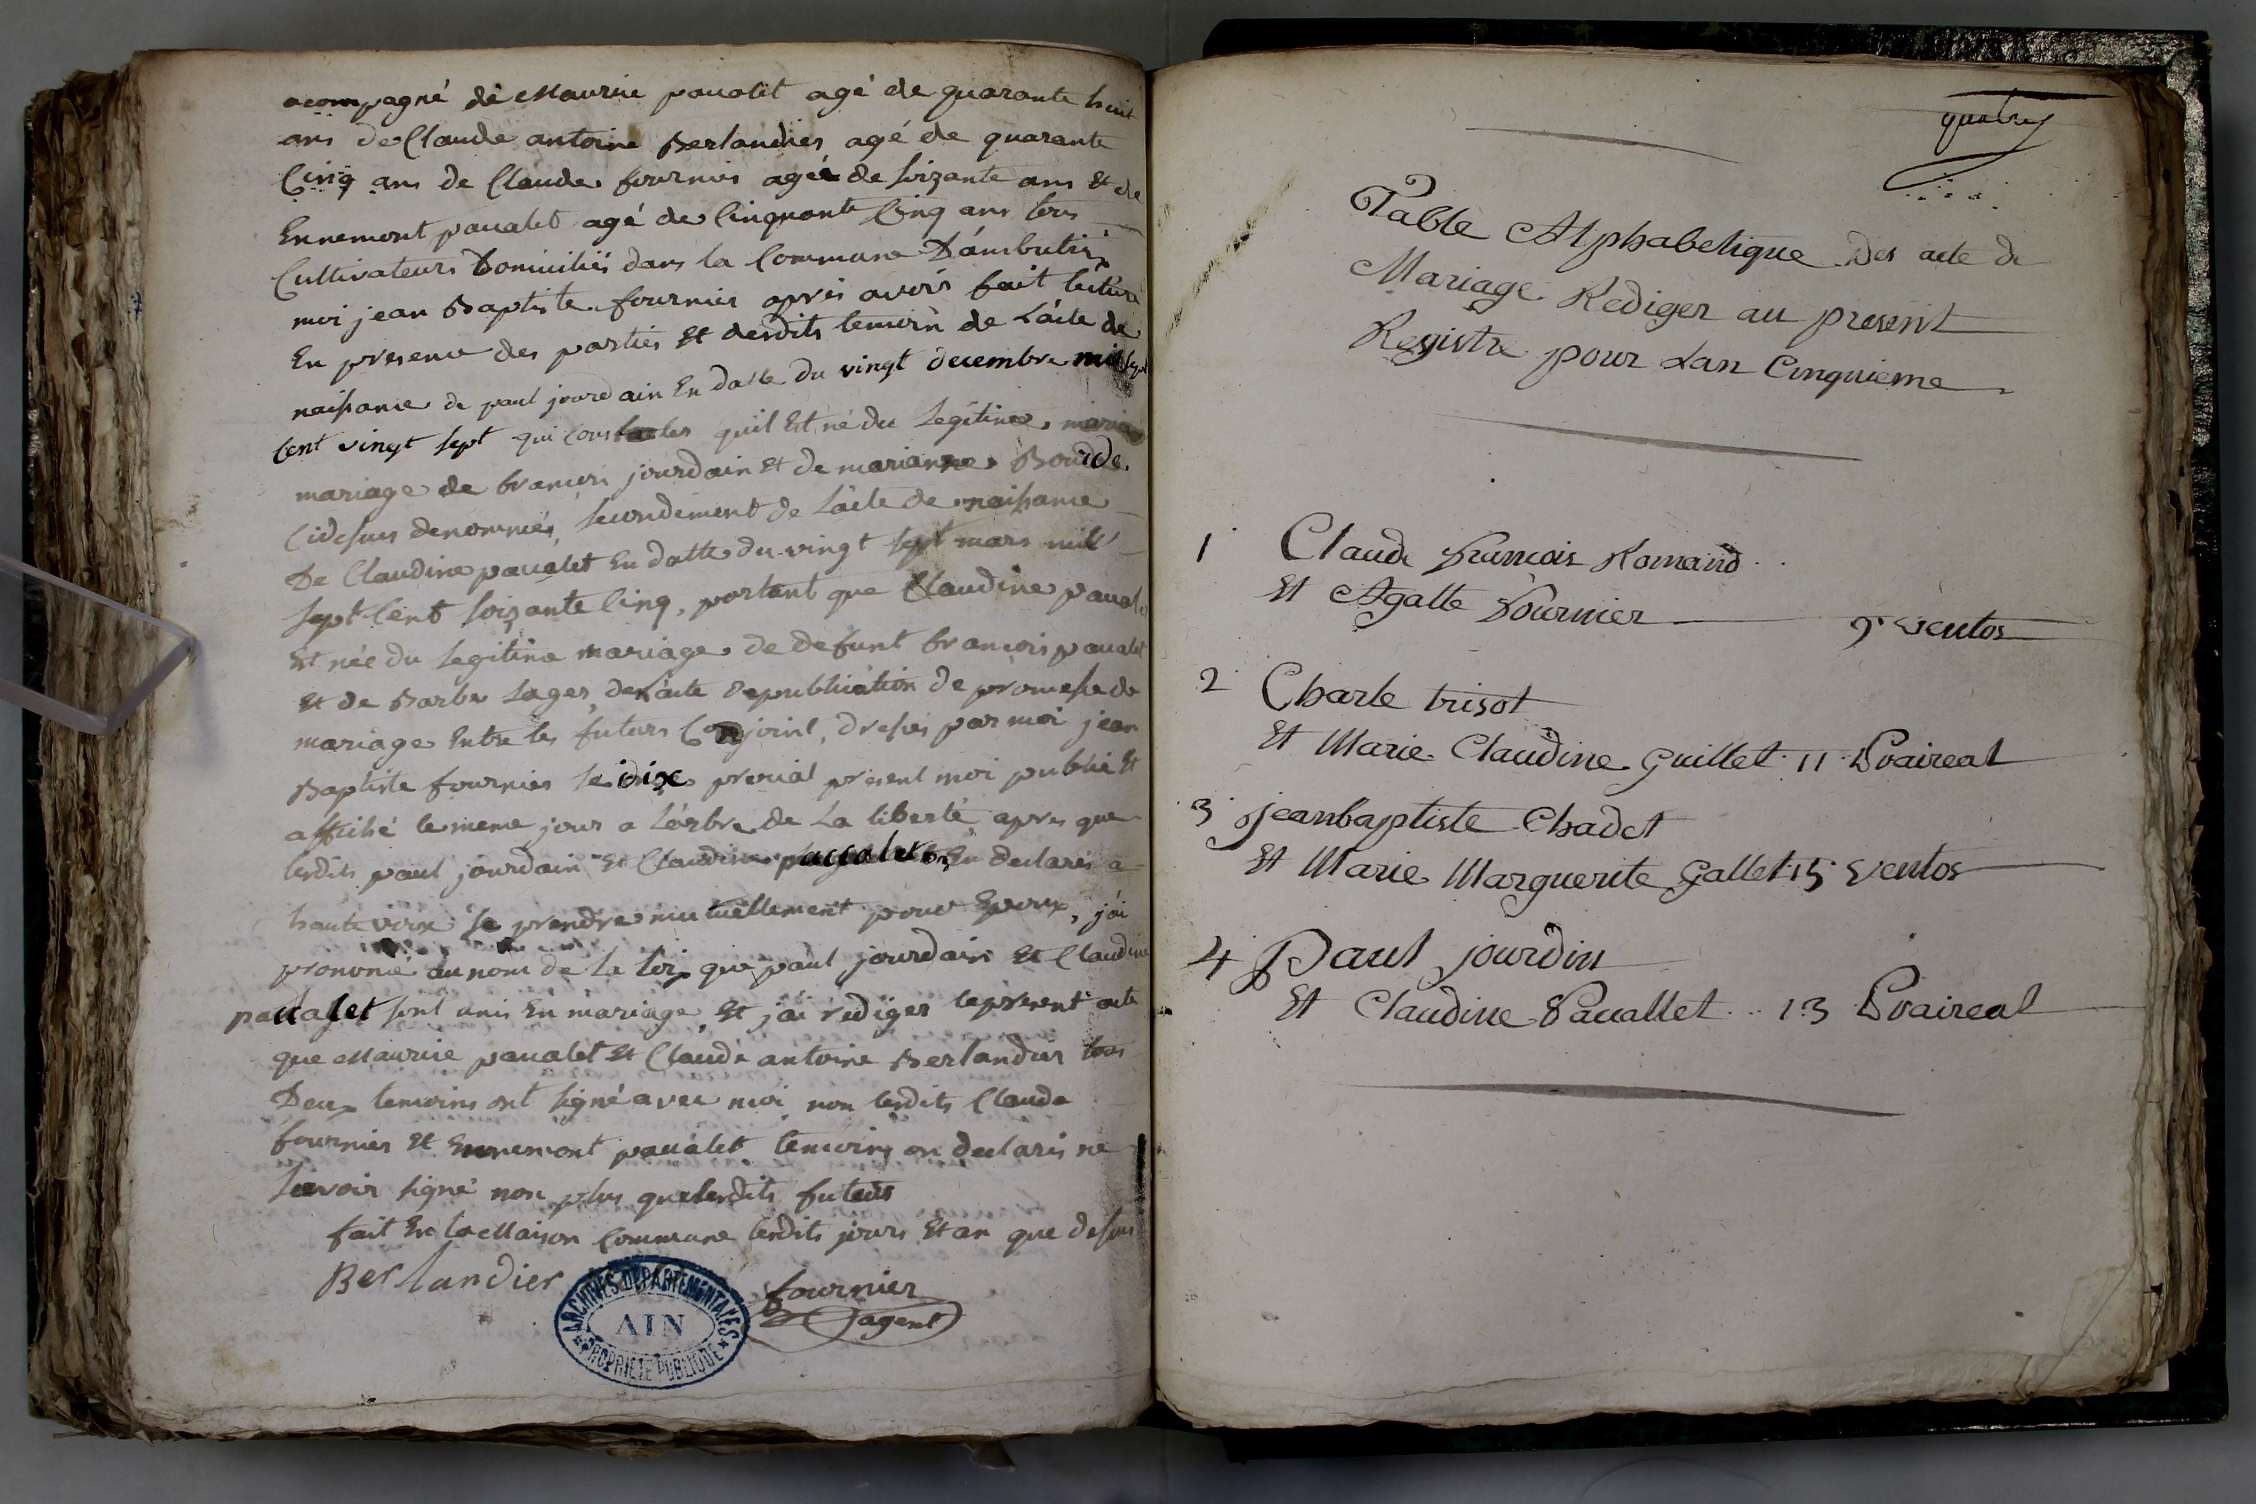 acompagné de Maurie pauatet agé de quarante huit
ans de Claude antoine Berlandier agé de quarante
Cinq ans de Claude fournier agée de soizante ans Et de
Ennemont pauatet agé de Cinquante Cinq ans tous
Cultivateurs Domiciliés dans la Commune D'ambutrix
moi jean Baptiste fournier aprés avoir fait lecture
En presence des parties Et desdits temoin de L'acte de
naissance de paul jourdain En datte du vingt decembre mil sept
Cent vingt sept qui quil Est né du Legitime
mariage de francois jourdain Et de marianne
Cidesus denommés, secondement de L'acte de naissance
De Claudine pauatet En datte du vingt sept mars mil
sept Cent soizante Cinq, portant que Claudine pauatet
Est née du Legitime mariage de defunt francois pauatet
Et de Barbe Lager, de L'acte de publication de promesse de
mariage Entre les futurs Conjoint, dressés par moi jean
Baptiste fournier le dix prerial present moi publié Et
affiché le meme jour a L'arbre de La liberté, apres que
lesdits paul jourdain Et Claudine paccalet on En declarés a
haute voix se prendre mutuellement pour Epoux, j'ai
prononcé au nom de la loix que paul jourdain Et Claudine
paccalet sont unis En mariage, Et j'ai rediger le present acte
que Maurie pauatet Et Claude antoine Berlandier tous
Deux temoins ont signé avec moi non lesdits Claude
fournier Et Ennemont pauatet temoins on declarés ne
savoir signé non plus que lesdits futurs
fait En la Maison Commune lesdits jours Et an que desus
Berlandier
fournier
agent
ARCHIVES DEPARTEMENTALES
AIN
PROPRIETE PUBLIQUE
quatre
Table Alphabetique Des acte de
Mariage Rediger au present
Registre pour Lan Cinquieme
1 Claude francois Romand
Et Agatte fournier 9 ventos
2 Charle trisot
Et Marie Claudine Guillet 11 Praireal
3 jeanbaptiste Chadet
Et Marie Marguerite Gallet 15 ventos
4 Paul jourdin
Et Claudine Pacallet 13 Praireal